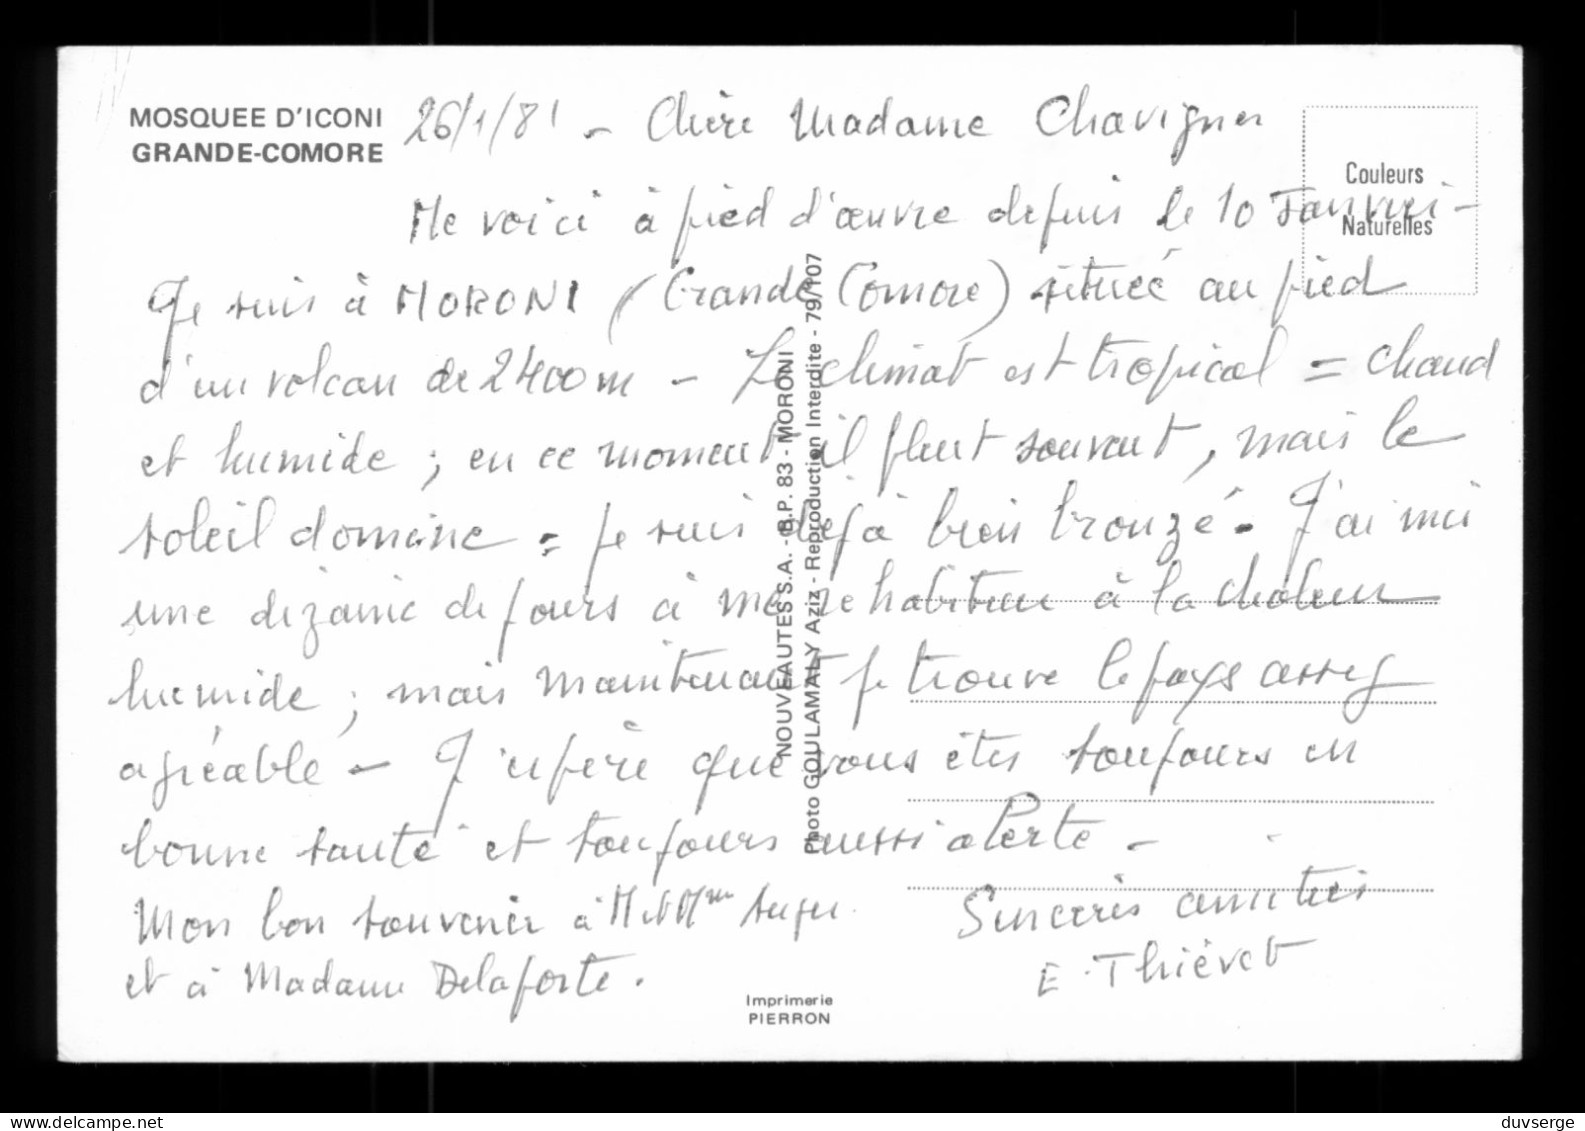 MOSQUEE D'ICONI
GRANDE-COMORE
26/1/81 - Chère Madame Chavigner
Couleurs
Naturelles
Me voici à pied d'œuvre depuis le 10 Janvier -
Je suis à MORONI (Grande Comore) située au pied
d'un volcan de 2400m - Le climat est tropical = chaud
et humide ; en ce moment il pleut souvent, mais le
soleil domine = je suis déjà bien bronzé. J'ai mis
une dizaine de jours à me réhabituer à la chaleur
humide ; mais maintenant je trouve le pays assez
agréable - J'espère que vous êtes toujours en
bonne santé et toujours aussi alerte -
Mon bon souvenir à M et Mme
et à Madame Delaporte.
Sincères amitiés
E. Thiévet
NOUVEAUTES S.A. - B.P. 83 - MORONI
Photo GOULAMALY Aziz - Reproduction Interdite - 79/107
Imprimerie
PIERRON
delcampe.net
duvserge